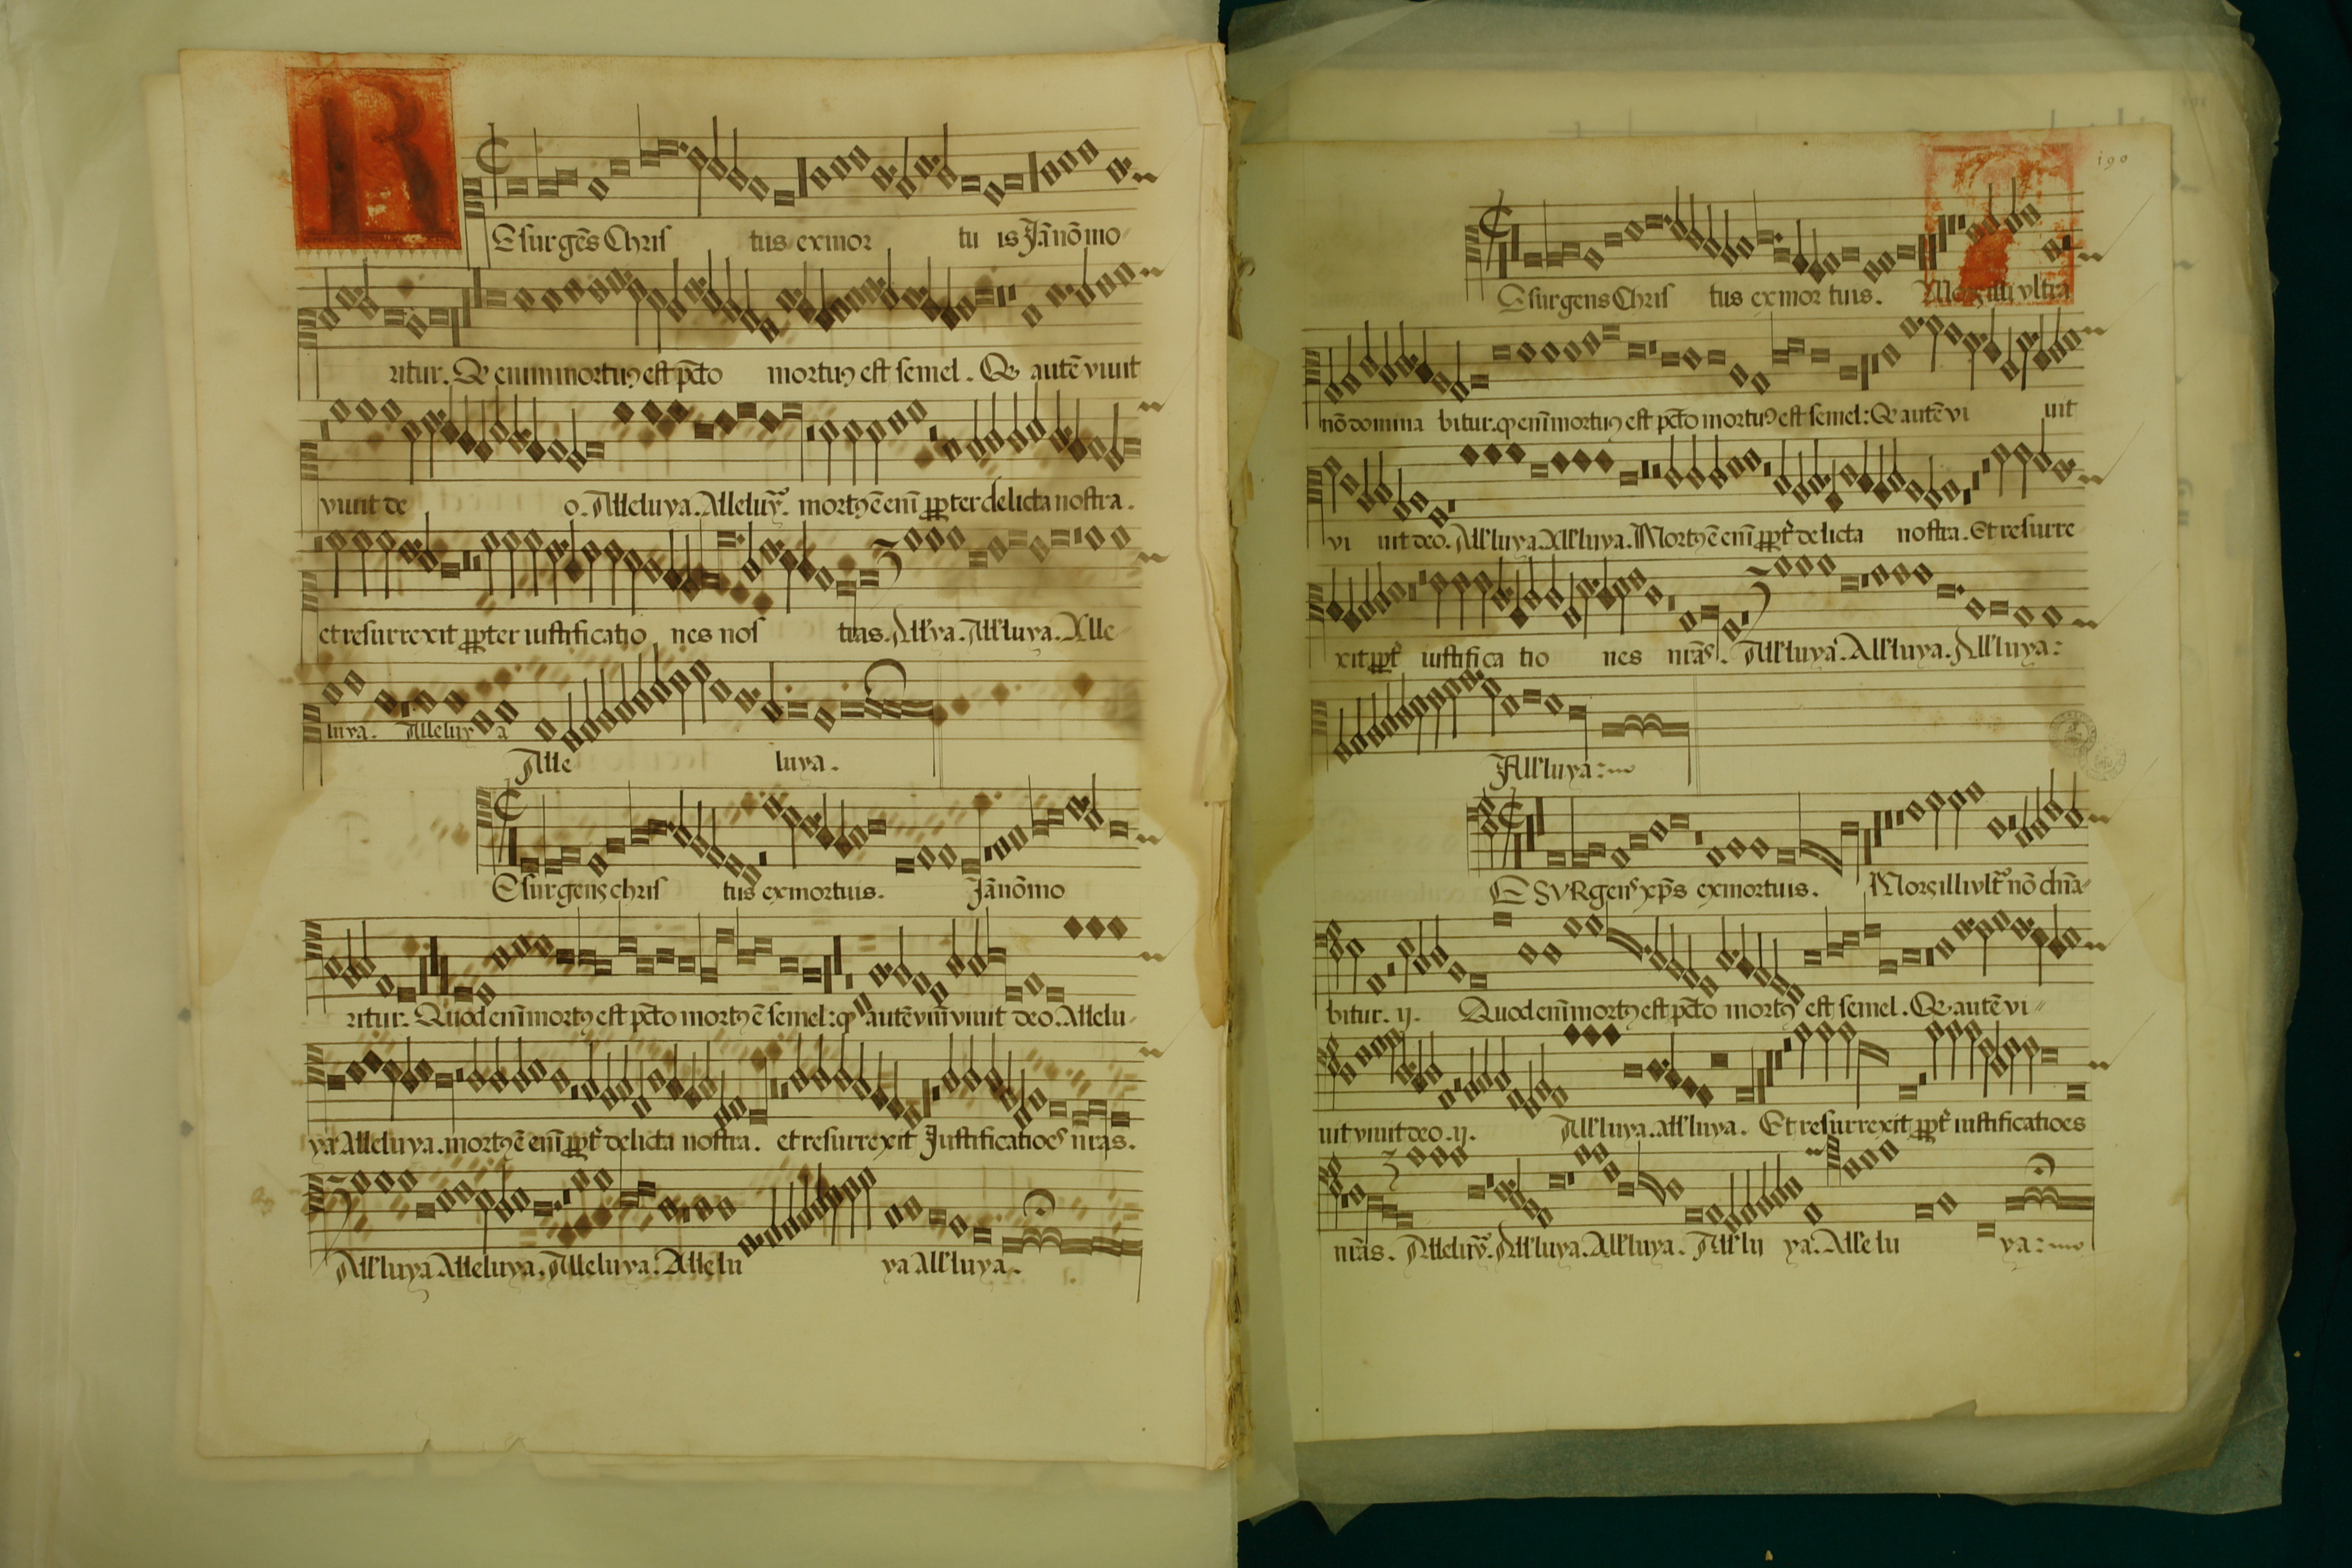 R
Esurgēs Chris tus exmor tu is Jā nō mo
ritur. Qd enim mortuꝰ est pcto mortuꝰ est semel. Qd autē viuit
viuit de o. Alleluya. Alleluya. mortꝰ ē eni ꝓpter delicta nostra.
et resurrexit ꝓpter iustificatio nes nos tras. All'ya. All'luya. Alle
luya. Alleluy a
Alle luya.
Esurgens chris tus exmortuis. Jā nō mo
ritur. Quod eni mortꝰ est pcto mortꝰ ē semel: qd autē viuit viuit deo. Allelu
ya Alleluya. mortꝰ ē eni ꝓpt delicta nostra. et resurrexit Justificatioes nras.
All'luya Alleluya. Alleluya. Allelu ya All'luya.
190
Esurgens Chris tus exmor tuis. Mors illi vltra
nō domina bitur. qd eni mortuꝰ est pcto mortuꝰ est semel: Qd autē vi uit
vi uit deo. All'luya. All'luya. Mortꝰ ē eni ꝓpt delicta nostra. Et resurre
xit ꝓpt iustifica tio nes nras. All'luya. All'luya. All'luya:
All'luya:
ESVRgens xps exmortuis. Mors illi vlt nō dnā
bitur. ij. Quod eni mortꝰ est pcto mortꝰ est semel. Qd autē vi
uit viuit deo. ij. All'luya. all'luya. Et resurrexit ꝓpt iustificatioes
nras. Alleluy. All'luya. All'luya. All'lu ya. Allelu ya: